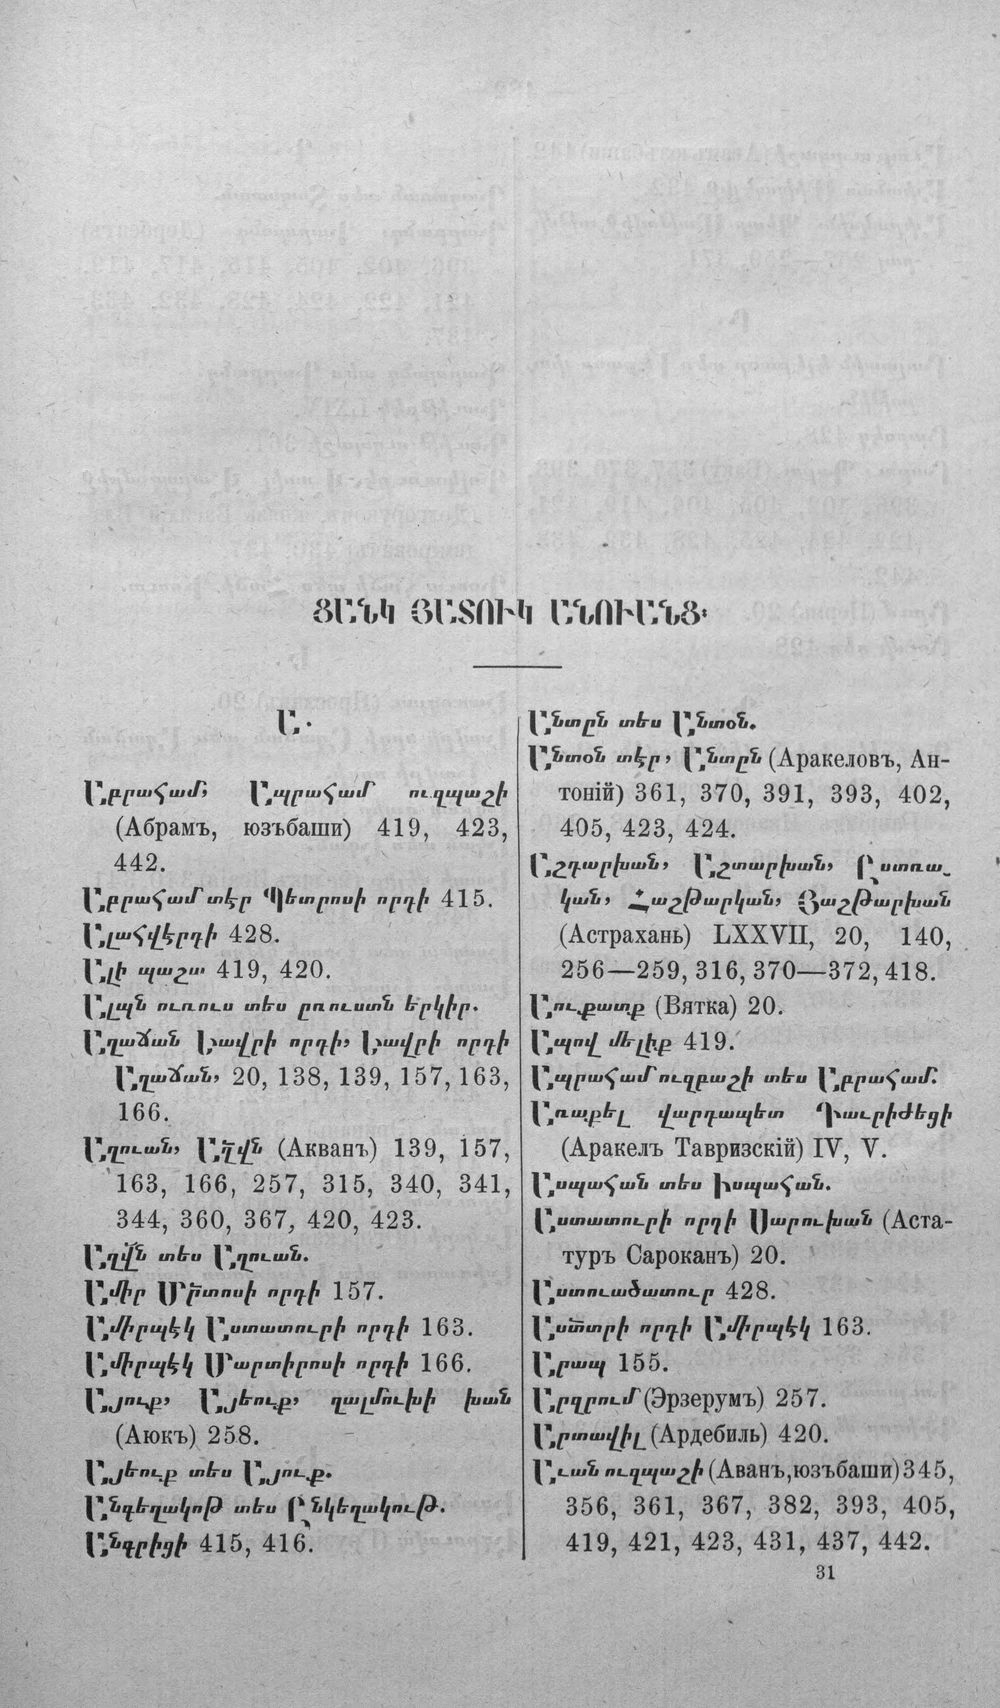 ՑԱՆԿ ՅԱՏՈՒԿ ԱՆՈՒԱՆՑ։
Ա.
Աբրահամ, Ապրահամ ուզպաշի
(Абрамъ, юзъбаши) 419, 423,
442.
Աբրահամ տէր Պետրոսի որդի 415.
Ալահվէրդի 428.
Ալի պաշա 419, 420.
Ալպն ուռուս տես ըռուստն երկիր.
Աղաճան Եավրի որդի, Եավրի որդի
Աղաճան, 20, 138, 139, 157, 163,
166.
Աղուան, Աղվն (Акванъ) 139, 157,
163, 166, 257, 315, 340, 341,
344, 360, 367, 420, 423.
Աղվն տես Աղուան.
Ամիր Մրտոսի որդի 157.
Ամիրպէկ Աստատուրի որդի 163.
Ամիրպէկ Մարտիրոսի որդի 166.
Այուք, Այեուք, ղալմուխի խան
(Аюкъ) 258.
Այեուք տես Այուք.
Անգեղակոթ տես Ընկեղակութ.
Անգրիցի 415, 416.
Անտըն տես Անտօն.
Անտօն տէր, Անտըն (Аракеловъ, Ан-
тоній) 361, 370, 391, 393, 402,
405, 423, 424.
Աշդարխան, Աշտարխան, Ըստռա-
կան, Հաշթարկան, Յաշթարխան
(Астрахань) LXXVII, 20, 140,
256—259, 316, 370—372, 418.
Աուքատք (Вятка) 20.
Ապով մելիք 419.
Ապրահամ ուզբաշի տես Աբրահամ.
Առաքել վարդապետ Դաւրիժեցի
(Аракелъ Тавризскій) IV, V.
Ասպահան տես Իսպահան.
Աստատուրի որդի Սարուխան (Аста-
туръ Сароканъ) 20.
Աստուածատուր 428.
Աստտրի որդի Ամիրպէկ 163.
Արապ 155.
Արզրում (Эрзерумъ) 257.
Արտավիլ (Ардебиль) 420.
Աւան ուզպաշի (Аванъ, юзъбаши) 345,
356, 361, 367, 382, 393, 405,
419, 421, 423, 431, 437, 442.
31